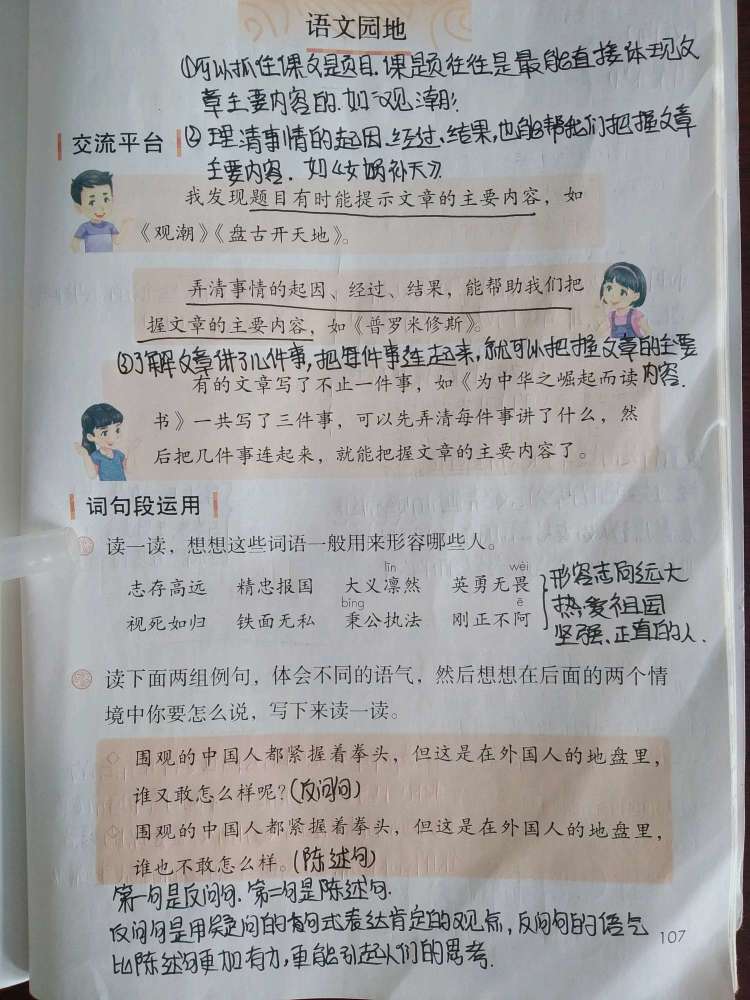 语文园地
①可以抓住课文是题目.课题页往往是最能直接体现文
章主要内容的.如《观潮》.
交流平台
②理清事情的起因、经过、结果,也能帮我们把握文章
主要内容.如《女娲补天》
我发现题目有时能提示文章的主要内容，如
《观潮》《盘古开天地》。
弄清事情的起因、经过、结果，能帮助我们把
握文章的主要内容，如《普罗米修斯》。
③了解文章讲了几件事,把每件事连起来,就可以把握文章的主要
内容.
有的文章写了不止一件事，如《为中华之崛起而读
书》一共写了三件事，可以先弄清每件事讲了什么，然
后把几件事连起来，就能把握文章的主要内容了。
词句段运用
读一读，想想这些词语一般用来形容哪些人。
lǐn wèi
志存高远 精忠报国 大义凛然 英勇无畏
bǐng ē
视死如归 铁面无私 秉公执法 刚正不阿
形容志向远大
热爱祖国
坚强、正直的人.
读下面两组例句，体会不同的语气，然后想想在后面的两个情
境中你要怎么说，写下来读一读。
◇ 围观的中国人都紧握着拳头，但这是在外国人的地盘里，
谁又敢怎么样呢？(反问句)
◇ 围观的中国人都紧握着拳头，但这是在外国人的地盘里，
谁也不敢怎么样。(陈述句)
第一句是反问句.第二句是陈述句.
反问句是用疑问的句式表达肯定的观点,反问句的语气
比陈述句更加有力,更能引起人们的思考.
107